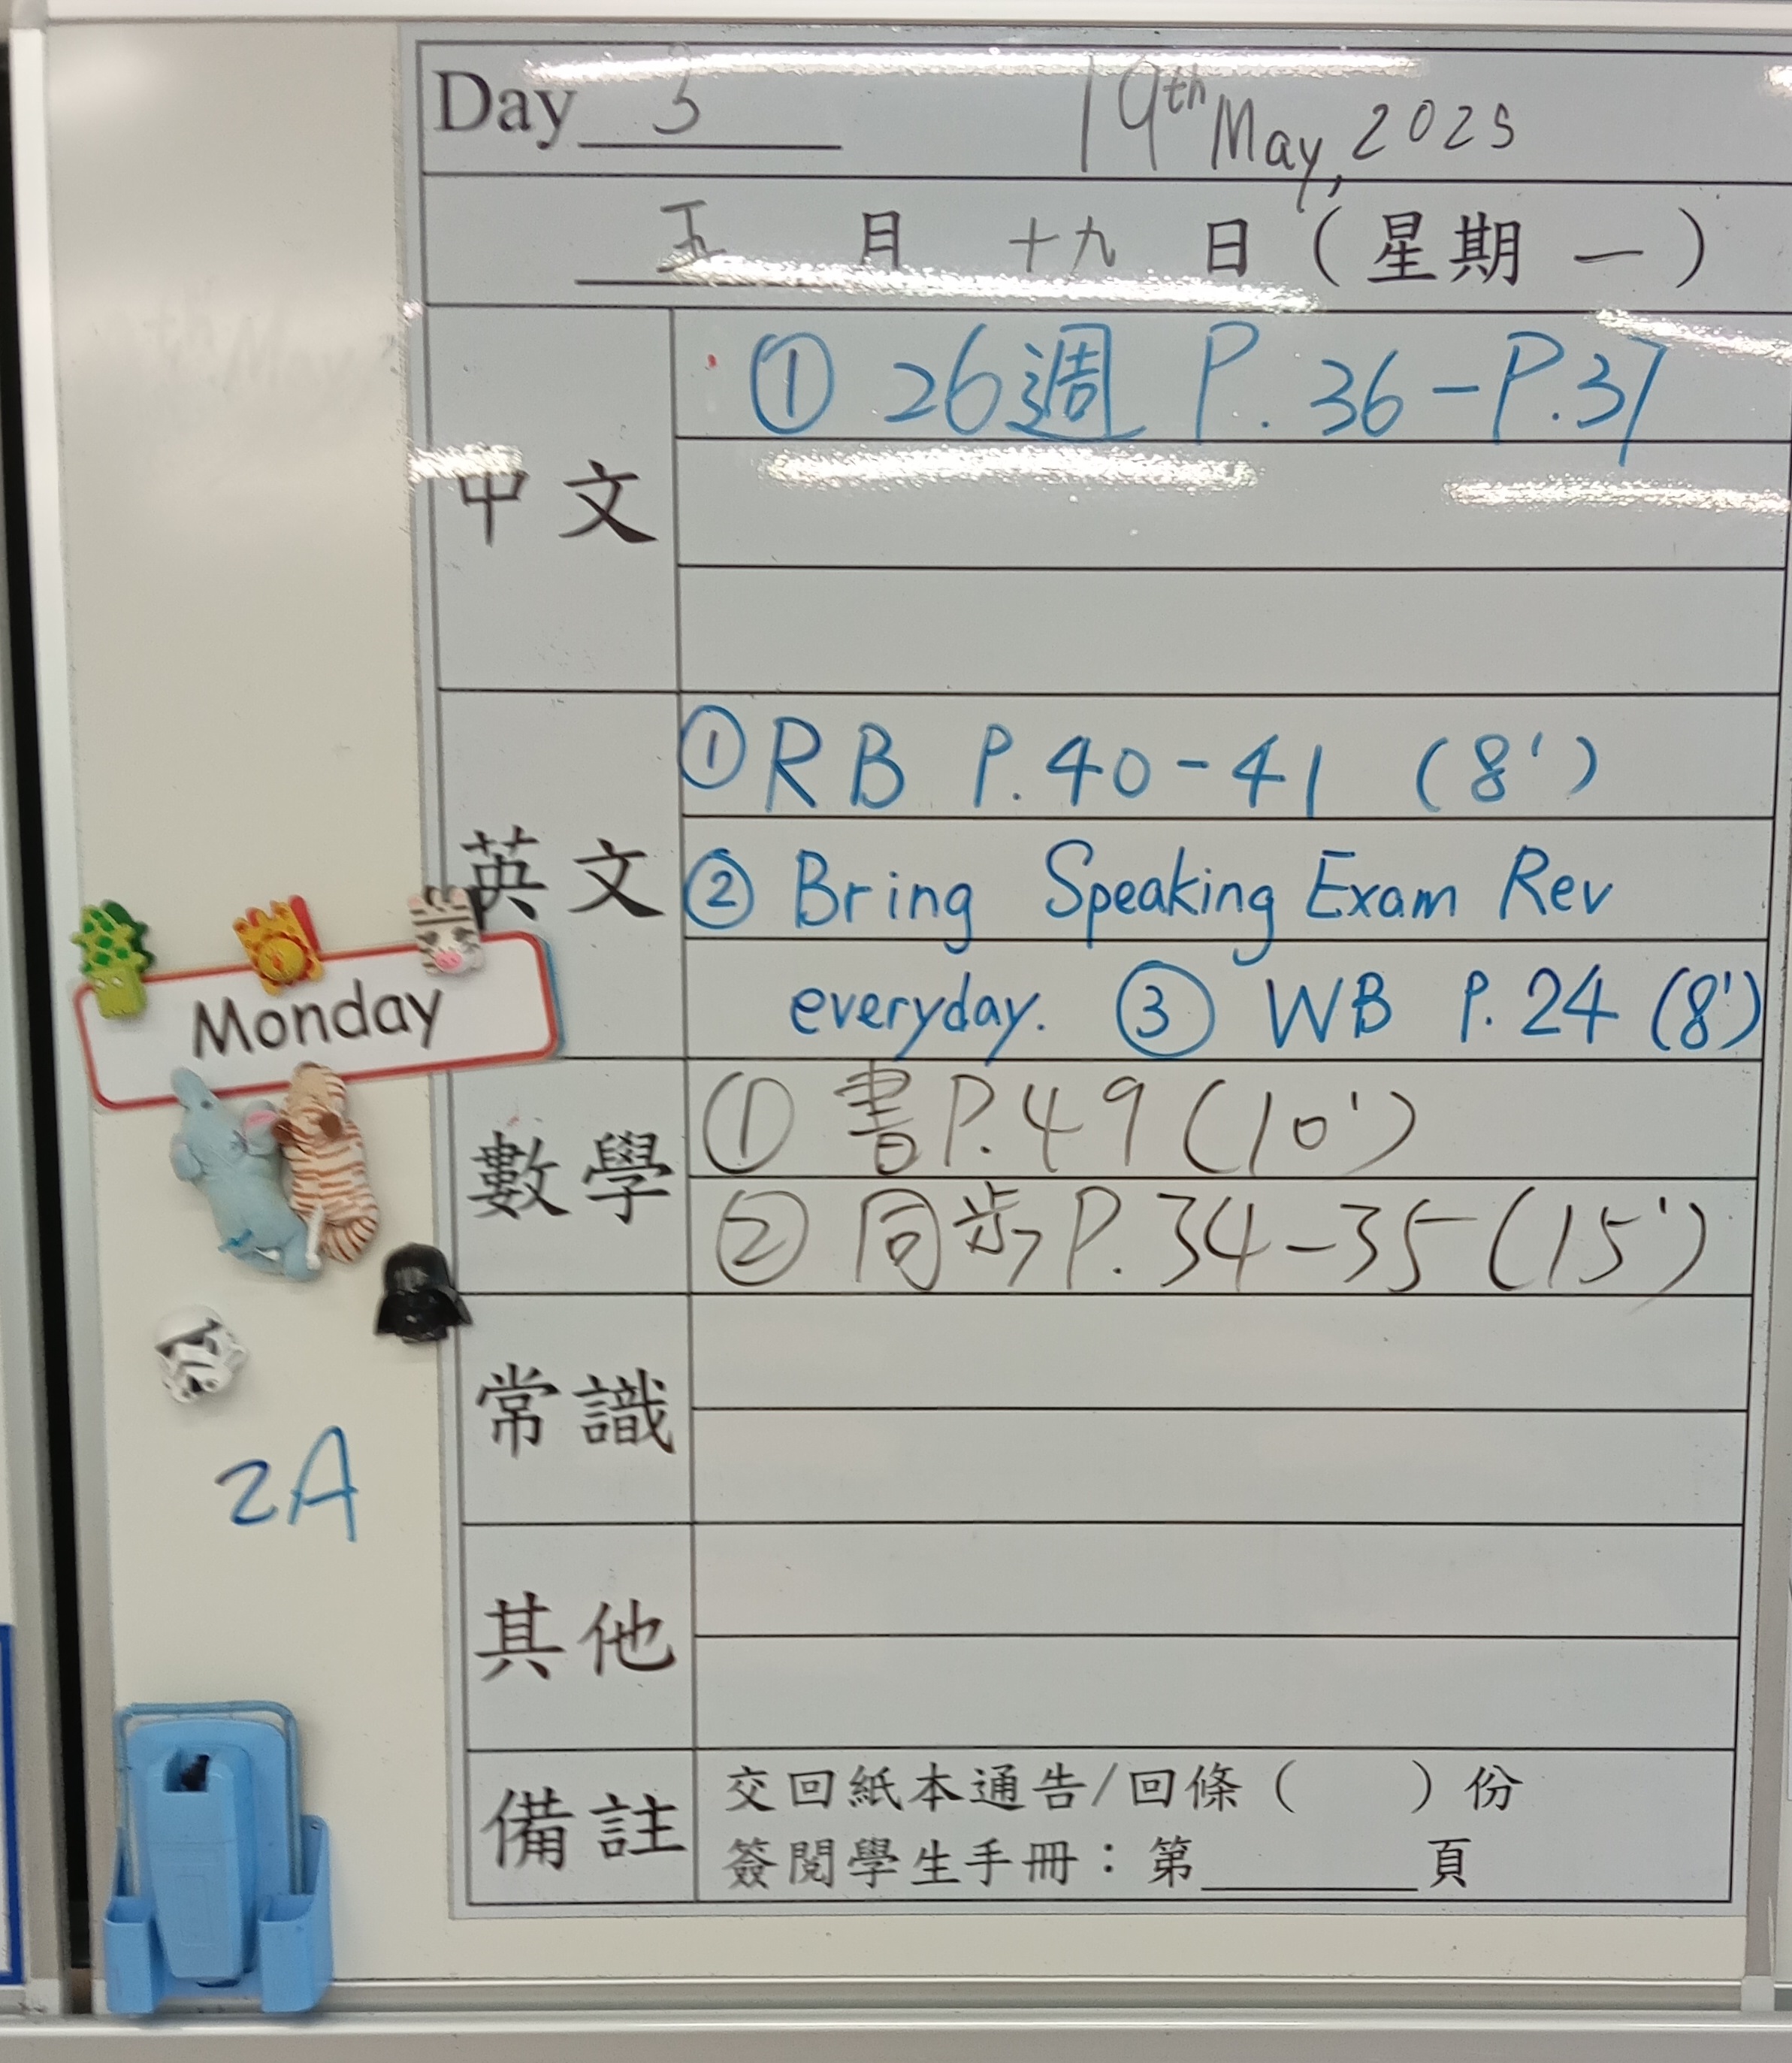 Day 3 19th May, 2025
五 月 十九 日 ( 星期 一 )
中文
① 26週 P. 36 - P.37
英文
① RB P. 40 - 41 (8')
② Bring Speaking Exam Rev
everyday. ③ WB P. 24 (8')
Monday
數學
① 書 P.49 (10')
② 同步 P.34-35 (15')
常識
2A
其他
備註
交回紙本通告/回條 ( ) 份
簽閱學生手冊：第______頁